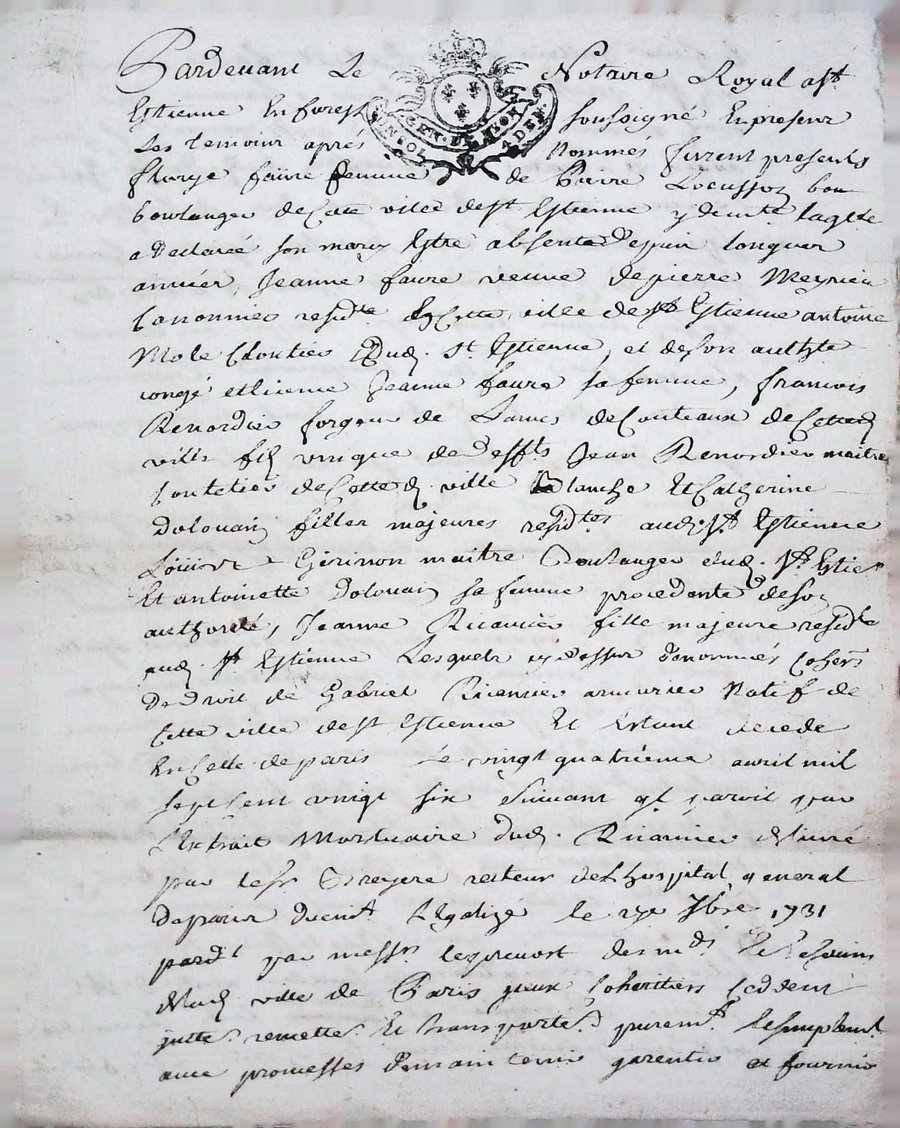 Pardevant Le Notaire Royal a st
Estienne En forest soussigné En presence
Les temoins aprés Nommés furent presents
fleurye faure femme de Pierre
boulanger de Cette ville de st Estienne
a Declaré son mary Estre absent Depuis longues
années, Jeanne faure veuve de pierre
Canonnier residte En Cette ville de st Estienne antoine
Mole Cloutier Dud. St Estienne, et de son authte
congé et licence Jeanne faure sa femme, francois
Renordier forgeur de Lames de Couteaux de Cetted
ville fils de Deffts Jean Renordier maitre
Coutelier de Cetted ville Blanche Et Catherine
Dolouain filles majeures residtes aud. st Estienne
Louis Gerinon maitre Boulanger dud. st Estie
Et antoinette Dolouain sa femme procedante de son
authorité, Jeanne Ricamier fille majeure residte
aud. st Estienne Lesquels cy dessus Denommés Cohers
De Droit de Gabriel Ricamier armurier Natif de
Cette ville de st Estienne Et Estant decede
En Celle de paris Le vingt quatriéme avril mil
sept Cent vingt six suivant qt paroit par
L'Extrait Mortuaire Dud. Ricamier delivré
par le sr recteur de l'hospital general
De paris duemt Legalizé le 7bre 1731
par messrs les prevost des mds Et Echevins
de lad ville de Paris yceux Coheritiers Ceddent
quitte remettet Et transportet puremt Et simplemt
avec promesses De maintenir garentir et fournir